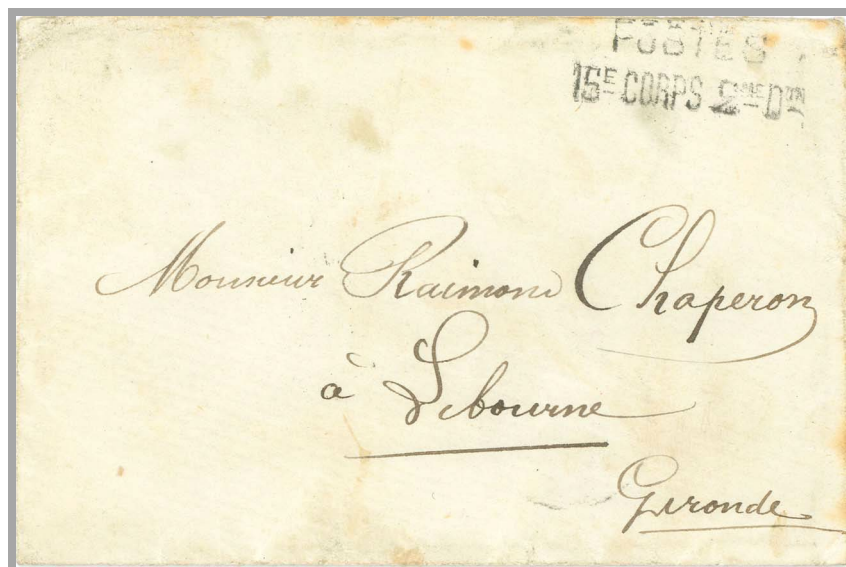 POSTES
15E CORPS 2ME DON
Monsieur Raimond Chaperon
à Libourne
Gironde